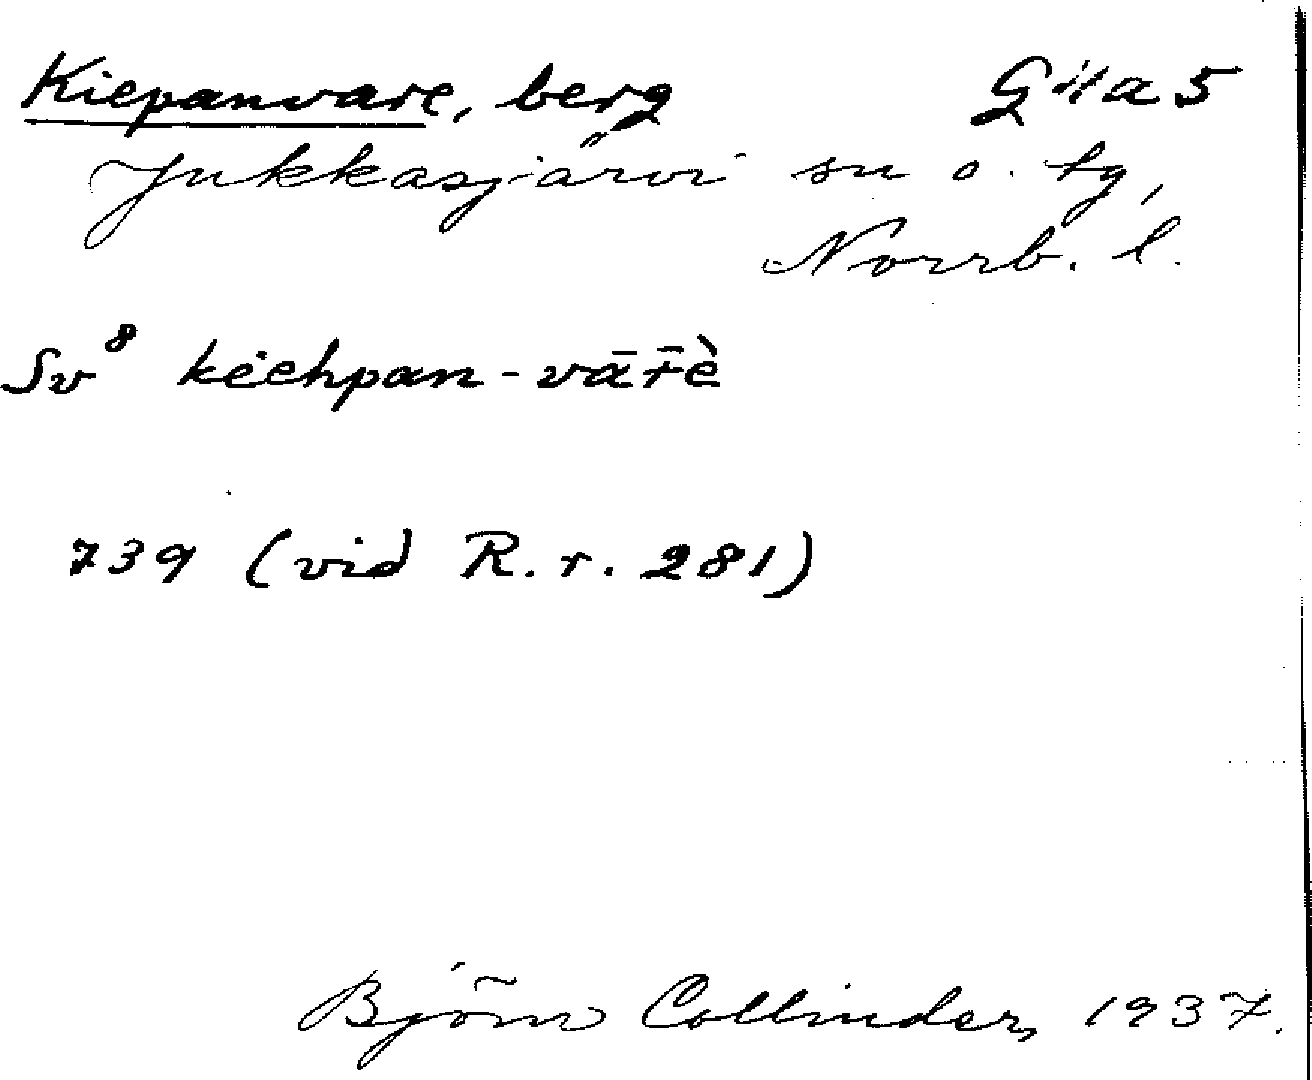 Kiepanvare, berg G 4a5
Jukkasjärvi sn o. tg,
Norrb. l.
Sv⁸ kėehpan-vār̄è
739 (vid R.r. 281)
Björn Collinder, 1937.